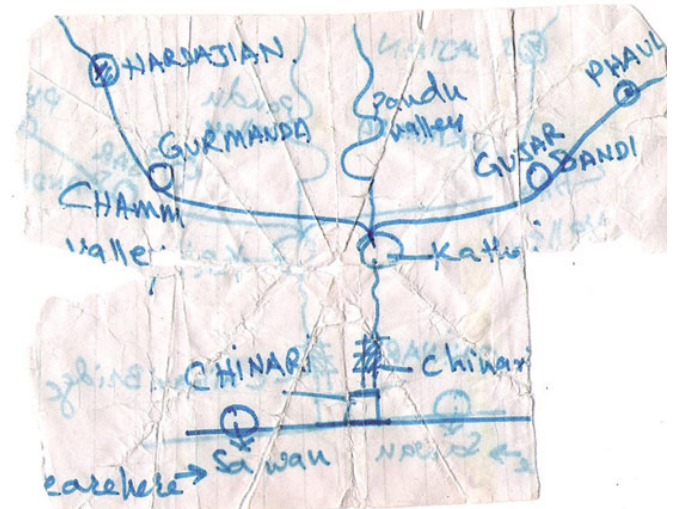 HARDAJIAN
PHAUL
pandu
valley
GURMANDA
GUJAR
BANDI
CHAMM
valle
Kathai
CHINARI
chinari
Sawan